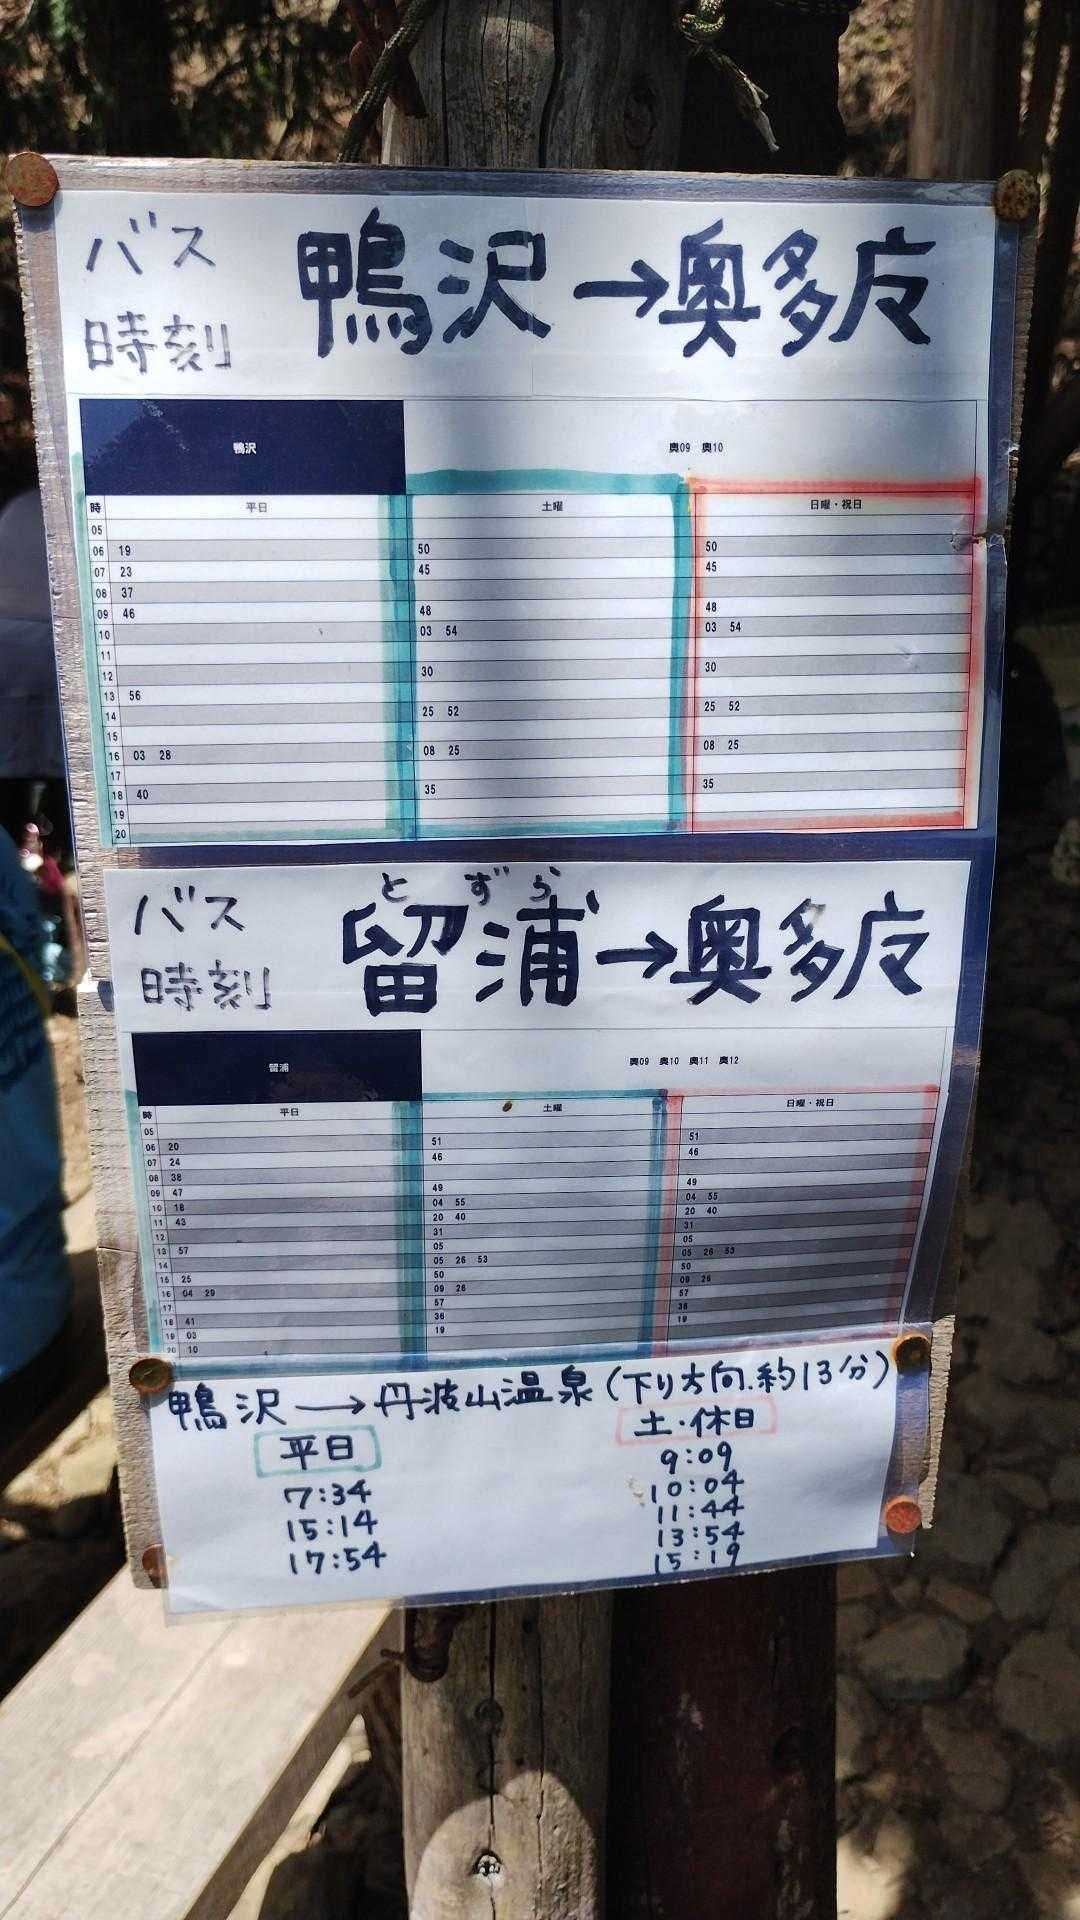 バス
時刻
鴨沢→奥多广
鴨沢
奥09 奥10
時 平日 土曜 日曜・祝日
05
06 19 50 50
07 23 45 45
08 37
09 46 48 48
10 03 54 03 54
11
12 30 30
13 56
14 25 52 25 52
15
16 03 28 08 25 08 25
17
18 40 35 35
19
20
バス
時刻
とずら
留浦→奥多广
留浦
奥09 奥10 奥11 奥12
時 平日 土曜 日曜・祝日
05
06 20 51 51
07 24 46 46
08 38
09 47 49 49
10 18 04 55 04 55
11 43 20 40 20 40
12 31 31
13 57 05 05
14 05 26 53 05 26 53
15 25 50 50
16 04 29 09 26 09 26
17 57 57
18 41 36 36
19 03 19 19
20 10
鴨沢→丹波山温泉(下り方向.約13分)
平日 土・休日
7:34 9:09
15:14 10:04
17:54 11:44
13:54
15:19